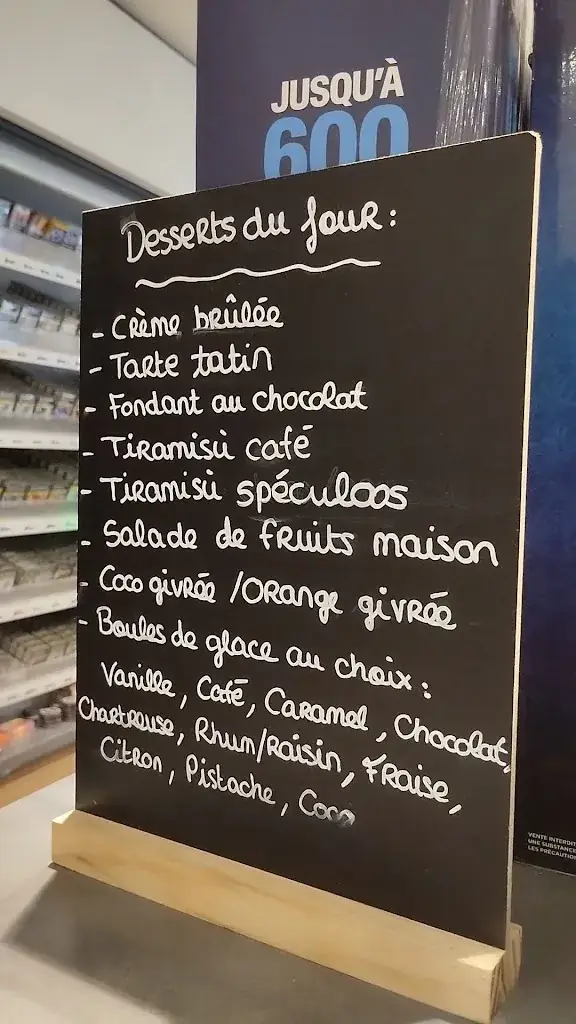 JUSQU'À
600
Desserts du Jour :
- Crème brûlée
- Tarte tatin
- Fondant au chocolat
- Tiramisù café
- Tiramisù spéculoos
- Salade de fruits maison
- Coco givrée / Orange givrée
- Boules de glace au choix :
Vanille, Café, Caramel, Chocolat,
Chartreuse, Rhum/Raisin, Fraise,
Citron, Pistache, Coco
VENTE INTERDIT
UNE SUBSTANCE
LES PRÉCAUTION